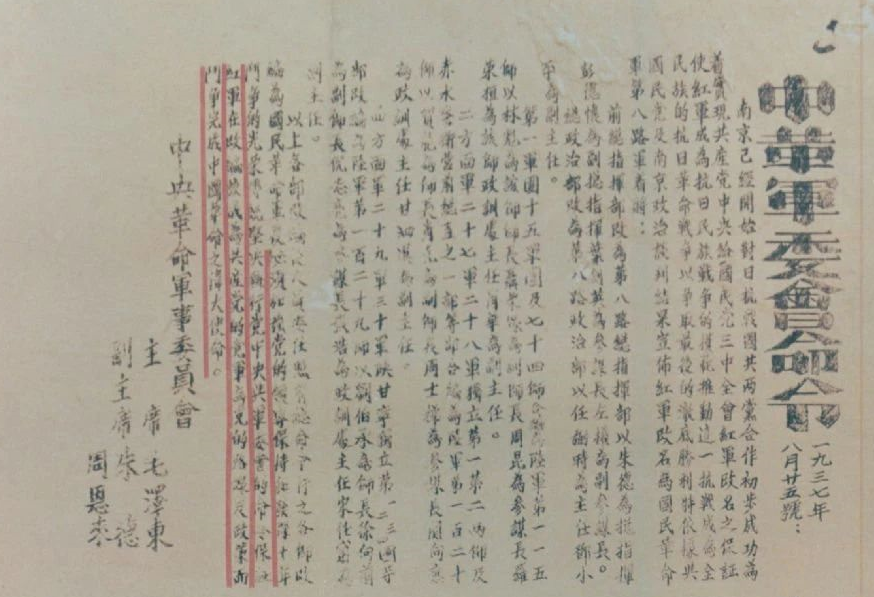 中華軍委会命令
一九三七年
八月廿五號：
南京已經開始對日抗戰國共两黨合作初步成功為
着實現共産党中央給國民党三中全會紅軍改名之保証
使紅軍成為抗日民族戰争的模範推動這一抗戰成為全
民族的抗日革命戰争以争取最後的澈底勝利特依據與
國民党及南京政治談判結果宣佈紅軍改名為國民革命
軍第八路軍着將：
前總指揮部改為第八路總指揮部以朱德為總指揮
彭德懷為副總指揮葉劍英為参謀長左權為副参謀長。
總政治部改為第八路政治部以任弼時為主任鄧小
平為副主任。
第一軍團十五軍團及七十四師合編為陸軍第一一五
師以林彪為該師師長聶榮臻為副師長周昆為参謀長羅
榮桓為該師政訓處主任蕭華為副主任。
二方面軍二十七軍二十八軍獨立第一第二两師及
赤水警衛營前總直之一部等部合編為陸軍第一百二十
師以賀龍為師長蕭克為副師長周士第為参謀長関向應
為政訓處主任甘泗淇為副主任。
四方面軍二十九軍三十軍陝甘寧獨立第一二三四等
部改編為陸軍第一百二十九師以劉伯承為師長徐向前
為副師長倪志亮為参謀長張浩為政訓處主任宋任窮為
副主任。
以上各部改編後人員委任照前總命令行之各部改
編為國民革命軍後必須加強党的領導保持和發揚十年
鬥争的光榮傳統堅決執行党中央與軍委會的命令保証
紅軍在改編後成為共産党的党軍為党的路線及政策而
鬥争完成中國革命之偉大使命。
中央革命軍事委員會
主席毛澤東
副主席朱德
周恩来